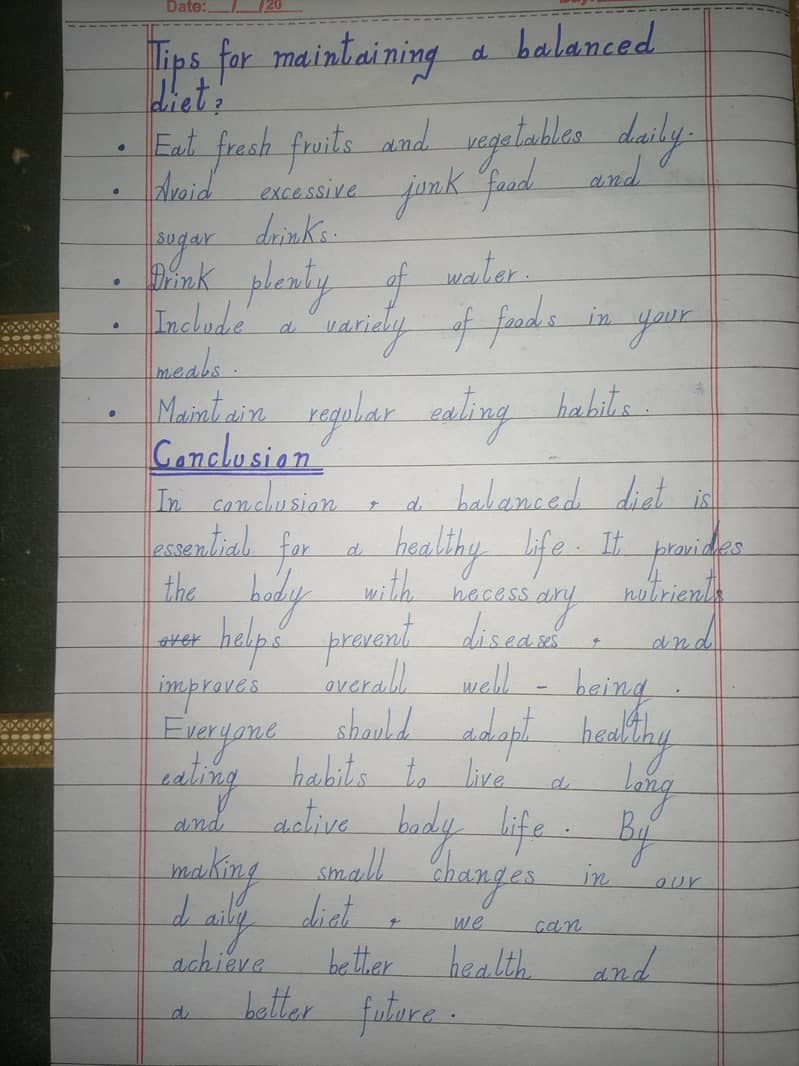 Date: / /20
Tips for maintaining a balanced
diet?
• Eat fresh fruits and vegetables daily.
• Avoid excessive junk food and
sugar drinks.
• Drink plenty of water.
• Include a variety of foods in your
meals.
• Maintain regular eating habits.
Conclusion
In conclusion, a balanced diet is
essential for a healthy life. It provides
the body with necessary nutrients
over helps prevent diseases, and
improves overall well-being.
Everyone should adopt healthy
eating habits to live a long
and active body life. By
making small changes in our
daily diet, we can
achieve better health and
a better future.